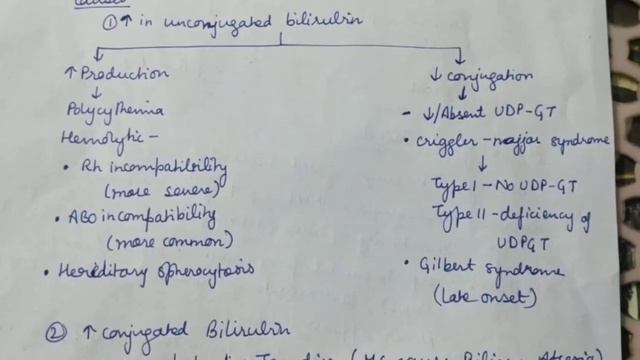 Causes
① ↑ in unconjugated bilirubin
↑ Production
↓
Polycythemia
Hemolytic -
• Rh incompatibility
(more severe)
• ABO incompatibility
(more common)
• Hereditary spherocytosis
↓ conjugation
↓
- ↓/Absent UDP-GT
• Criggler-najjar syndrome
↓
Type I - No UDP-GT
Type II - deficiency of
UDPGT
• Gilbert syndrome
(late onset)
② ↑ conjugated Bilirubin